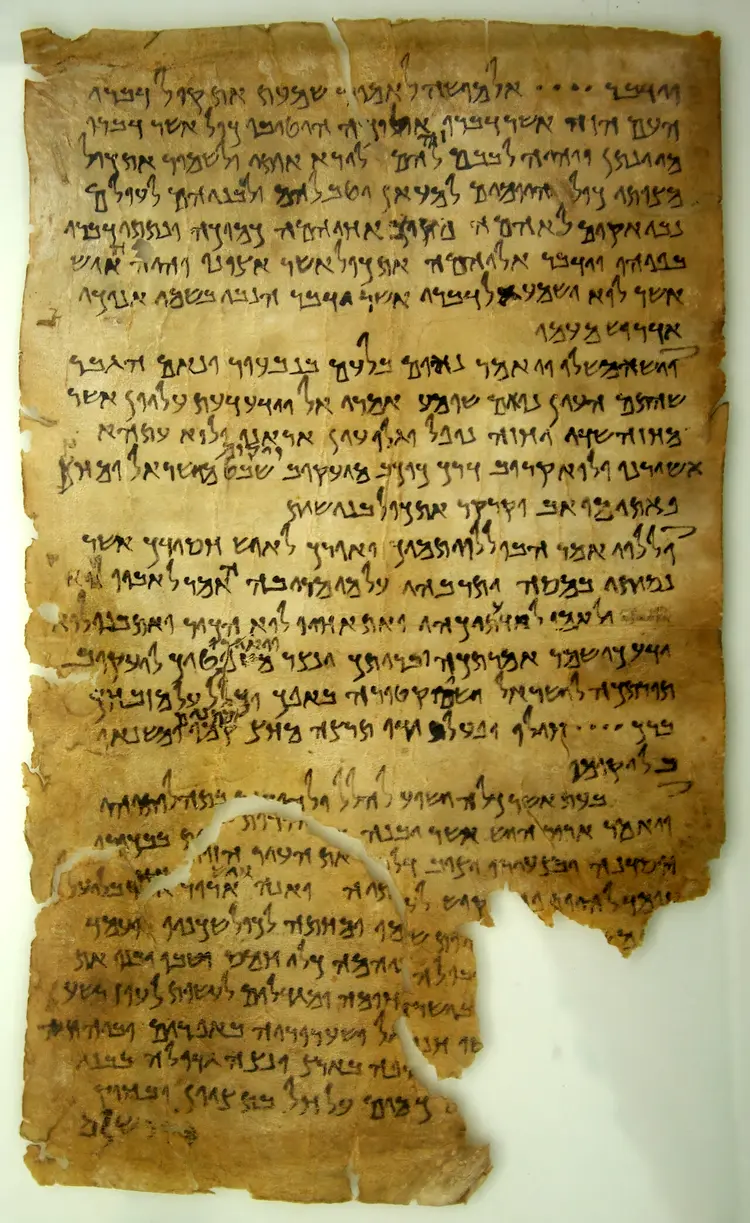 וידבר •••• אל מושה לאמור שמעת את קול דברי
העם הזה אשר דברו אליכה היטיבו כול אשר דברו
מי ינתן ויהיה לבבם זה להם לירא אותי ולשמור את כול
מצותי כול היומים למעאן יטב להם ולבניהם לעולם
נבי אקים לאהמה מקרב אחיהמה כמוכה ונתתי דברי
בפיהו וידבר אליהמה את כול אשר אצונו והיה האיש
אשר לוא ישמע אל דברי אשר ידבר הנבי בשמי אנוכי
אדרוש מעמו
וישא משלו ויאמר נאום בלעם בנבעור ונאם הגבר
שהתם העין נואם שומע אמרי אל וידע דעת עליון אשר
מחזה שדי יחזה נופל וגלו עין אראנו ולוא עתהא
אשורנו ולוא קרוב דרך כוכב מיעקוב ויקום שבט מישראל ומחץ
פאתי מואב וקרקר את כול בני שית
וללוי אמר הבו ללוי תמיך ואורך לאיש חסידך אשר
נסיתו במסה ותרבהו על מי מריבה האמר לאביו לוא
ולאמו לוא ידעתיכהו ואת אחיו לוא הכיר ואת בנו לוא
ידע כי שמר אמרתכה ובריתך ינצר ויאירו משפטיך ליעקוב
תורתכה לישראל ישים קטורה באפך וכליל על מזבחך
ברך •••• חילו ופעל ידו תרצה מחץ מתנים קמו ומשנאו
בל יקומו
בעת אשר כלה ישוע להלל ולהודות בתהלותיהו
ויאמר ארור היש אשר יבנה את העיר הזות בבכורו
ייסדנה ובצעירו יציב דלתיה ואנה איש ארור אחד בליעל
עומד להיות פח יקוש לעמו ומחתה לכול שכניו ועמד
שניהמה כלי חמס ושבו ובנו את
חומה ומגדלים לעשות לעוז רשע
בישראל ושערוריה באפרים וביהודה
חנופה בארץ ונצה גדולה בבני
כמים על חל בת ציון ובחוק
ירושלם